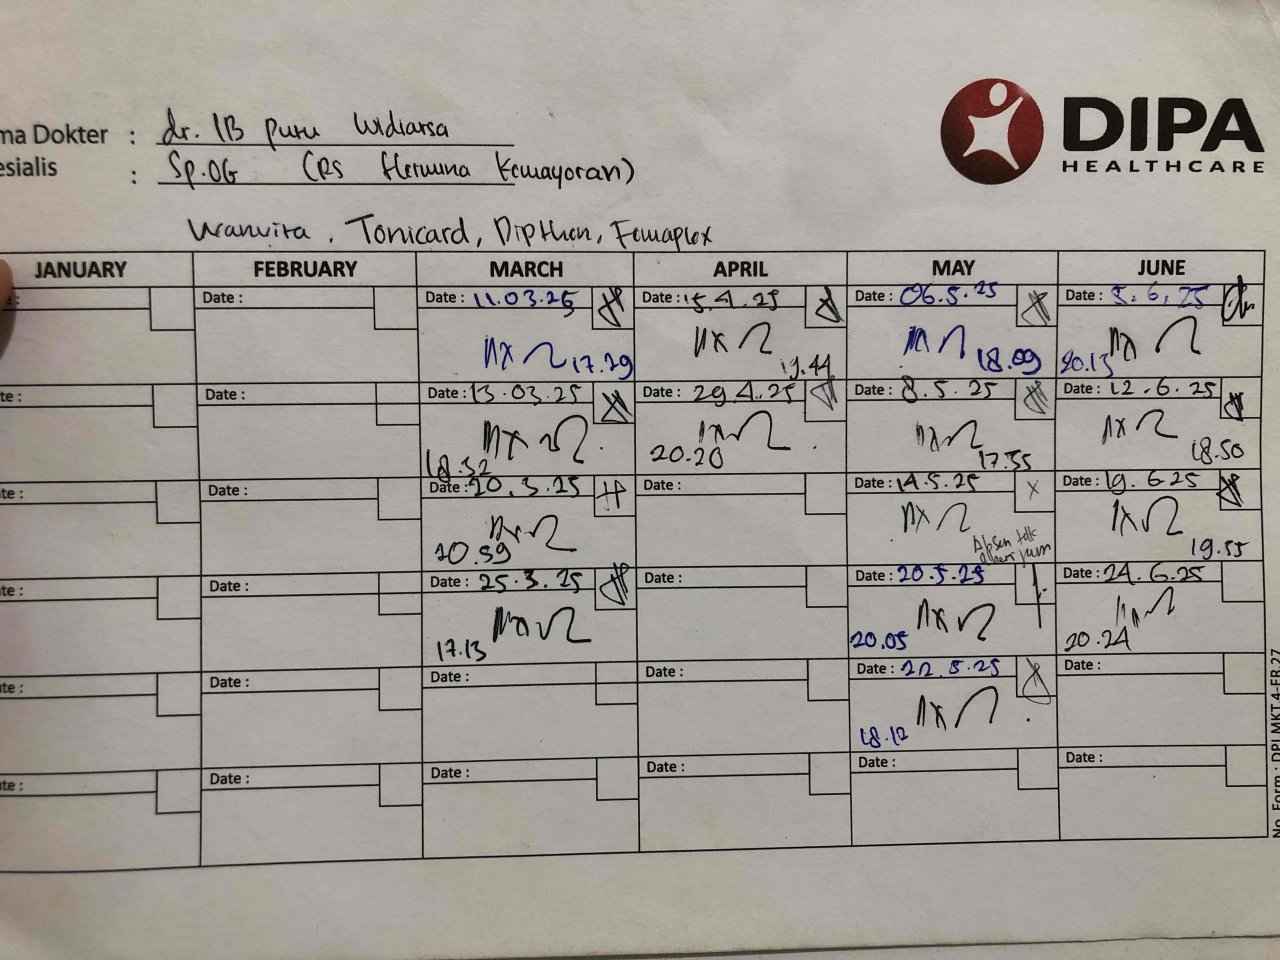 DIPA
HEALTHCARE
ma Dokter : dr. IB Putu Widiarsa
esialis : Sp.OG (RS Hermina Kemayoran)
Uranvita, Tonicard, Dipthen, Femaplex
JANUARY FEBRUARY MARCH APRIL MAY JUNE
Date : Date : 11.03.25 Date : 15.4.25 Date : 06.5.25 Date : 5.6.25
17.29 19.44 18.09 20.13
te : Date : Date : 13.03.25 Date : 29.4.25 Date : 8.5.25 Date : 12.6.25
18.32 20.20 17.55 18.50
te : Date : Date : 20.3.25 Date : Date : 14.5.25 x Date : 19.6.25
20.59 Absen 19.55
te : Date : Date : 25.3.25 Date : Date : 20.5.25 Date : 24.6.25
17.13 20.05 20.24
te : Date : Date : Date : Date : 22.5.25 Date :
18.12
te : Date : Date : Date : Date : Date :
No. Form : DPI.MKT.4-FR.27